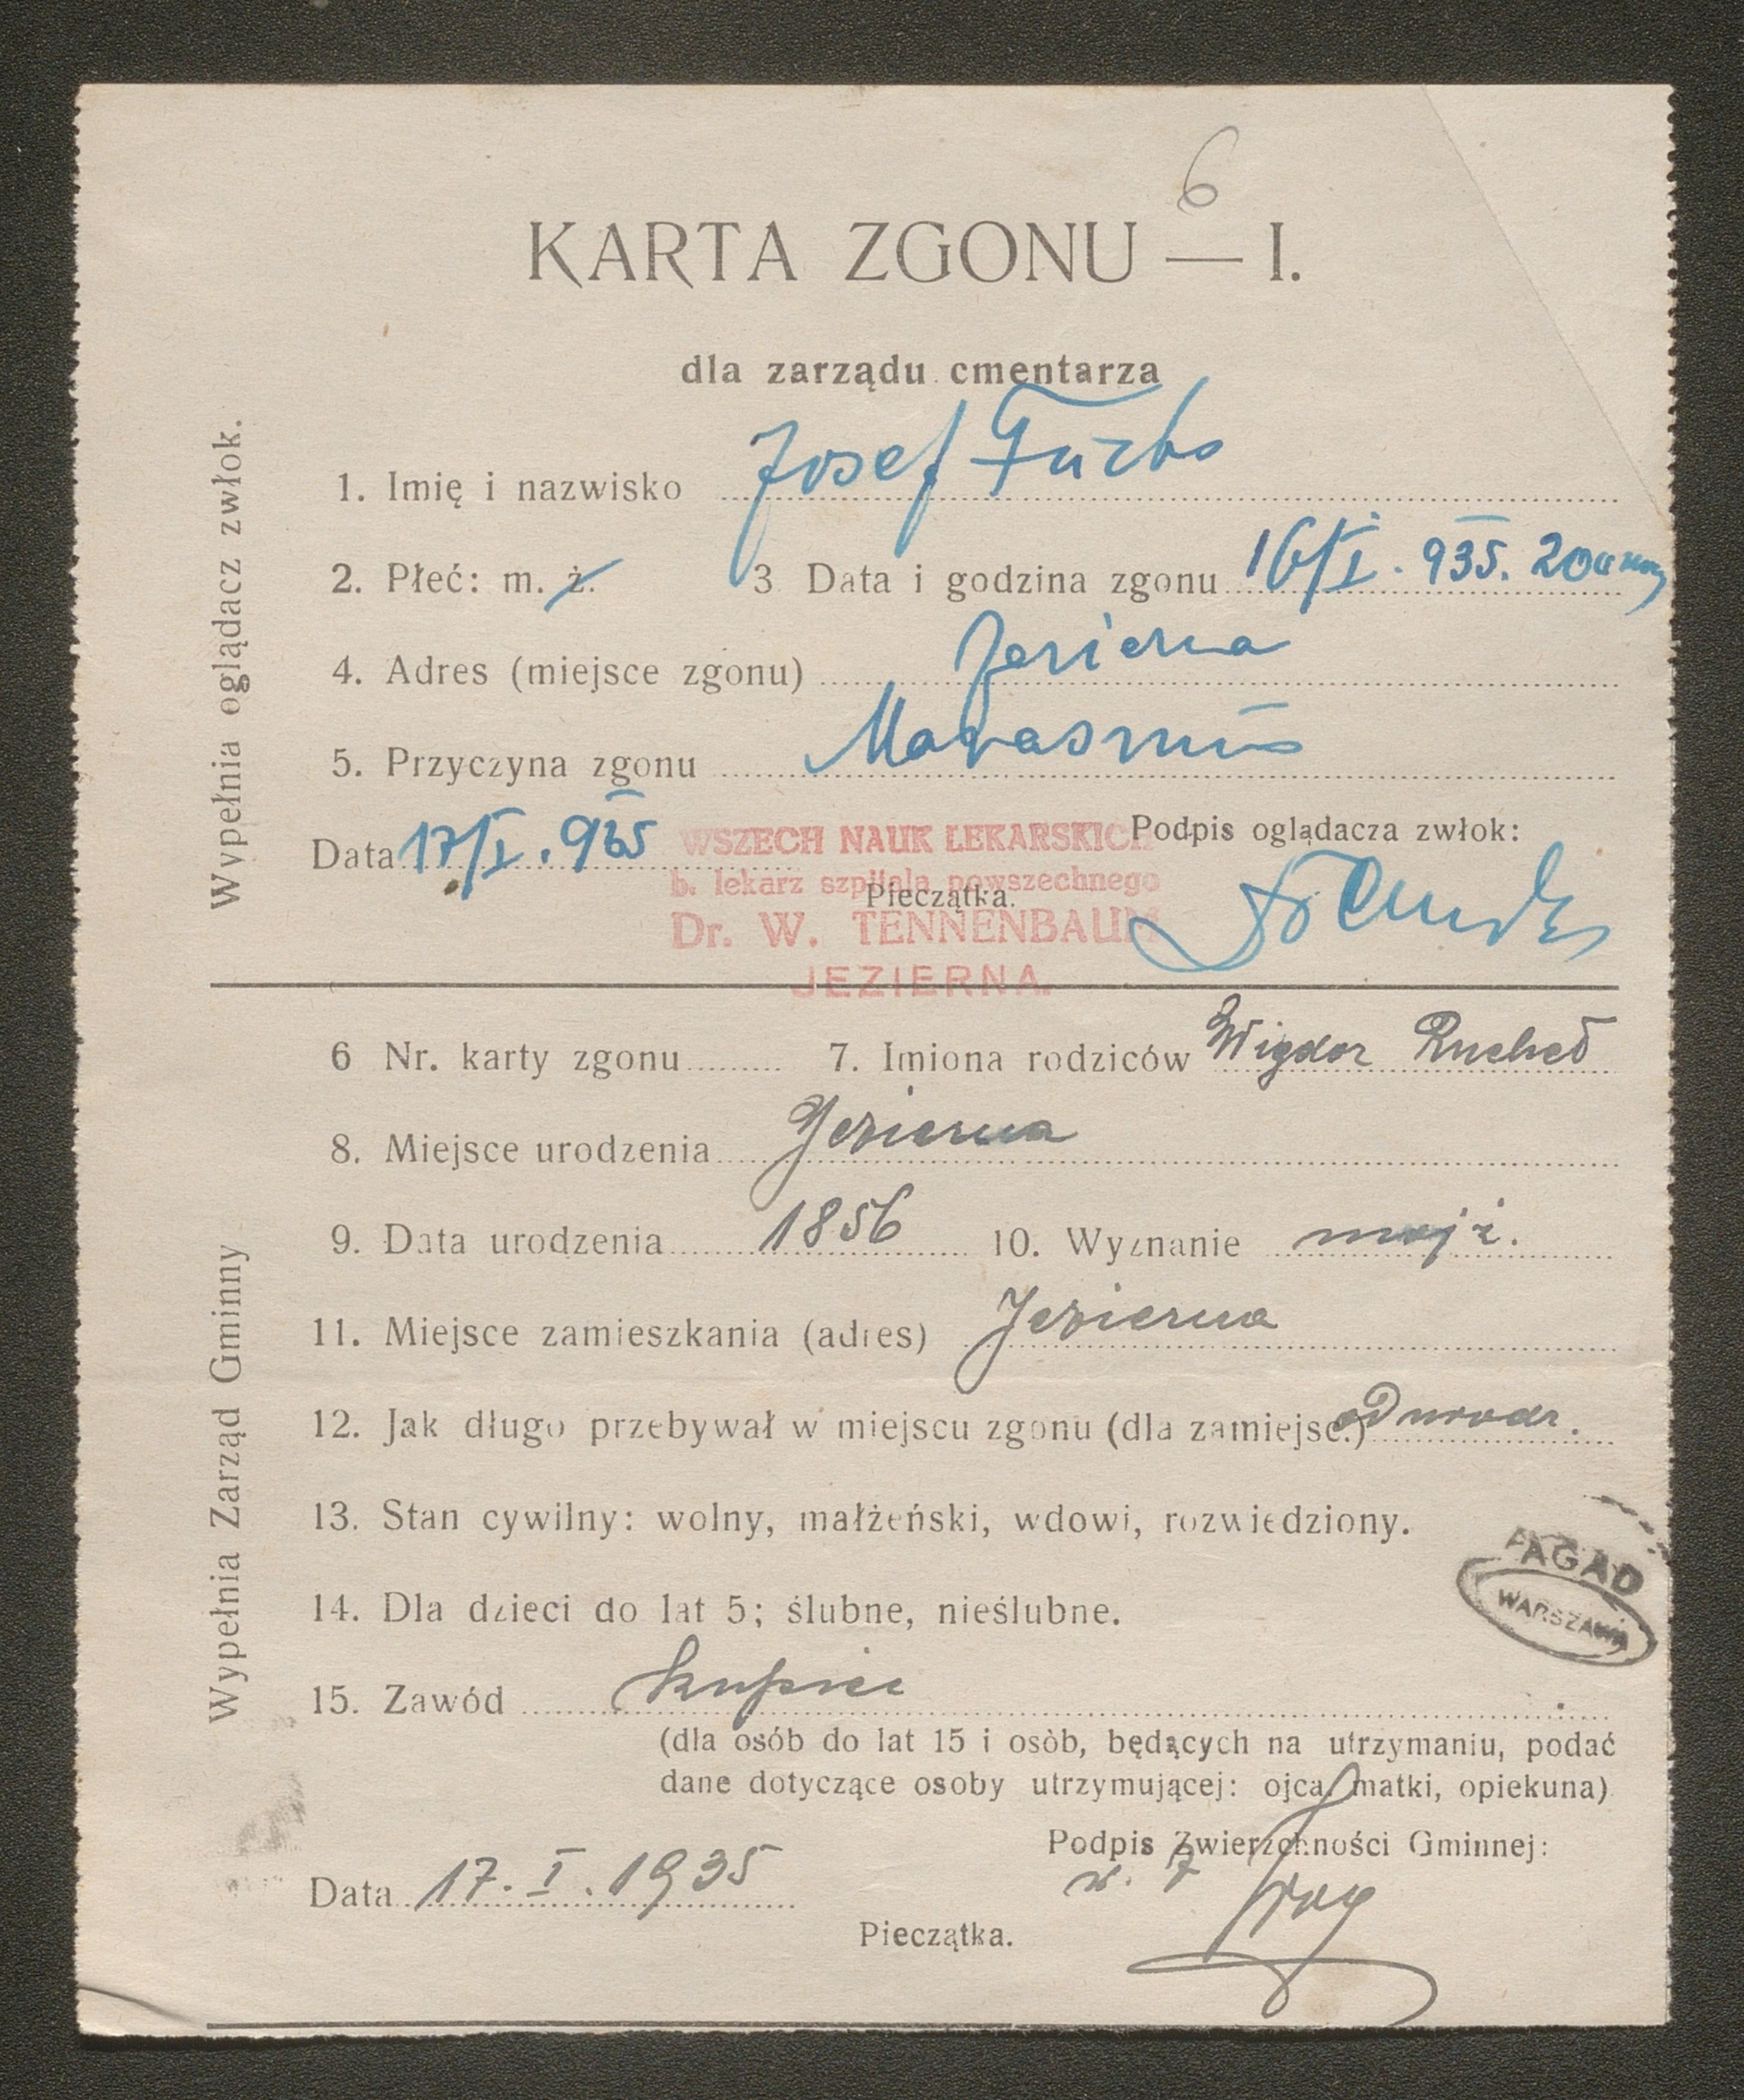 6
KARTA ZGONU — I.
dla zarządu cmentarza
Wypełnia oglądacz zwłok.
1. Imię i nazwisko Josef Fuchs
2. Płeć: m. ż. 3 Data i godzina zgonu 16/I. 935. 20
4. Adres (miejsce zgonu) Jezierna
5. Przyczyna zgonu Marasmus
Data 17/I. 935
Podpis oglądacza zwłok:
WSZECH NAUK LEKARSKICH
b. lekarz szpitala powszechnego
Pieczątka.
Dr. W. TENNENBAUM
JEZIERNA.
Wypełnia Zarząd Gminny
6 Nr. karty zgonu 7. Imiona rodziców Wigdor Ruchel
8. Miejsce urodzenia Jezierna
9. Data urodzenia 1856 10. Wyznanie mojż.
11. Miejsce zamieszkania (adres) Jezierna
12. Jak długo przebywał w miejscu zgonu (dla zamiejsc.) od urodz.
13. Stan cywilny: wolny, małżeński, wdowi, rozwiedziony.
14. Dla dzieci do lat 5; ślubne, nieślubne.
AGAD
WARSZAWA
15. Zawód kupiec
(dla osób do lat 15 i osòb, będących na utrzymaniu, podać
dane dotyczące osoby utrzymującej: ojca, matki, opiekuna)
Podpis Zwierzchności Gminnej:
Data 17. I. 1935
Pieczątka.